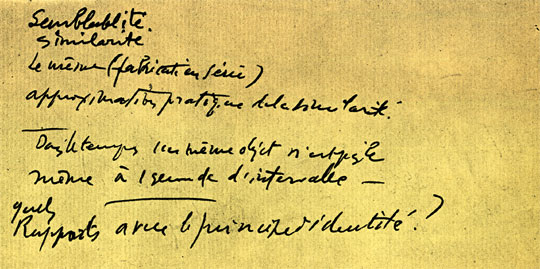 Semblablité.
similarité.
Le même (fabricat en série)
approximation pratique de la similarité.
Dans le temps un même objet n'est pas le
même à 1 seconde d'intervalle —
quels
Rapports avec le principe d'identité ?